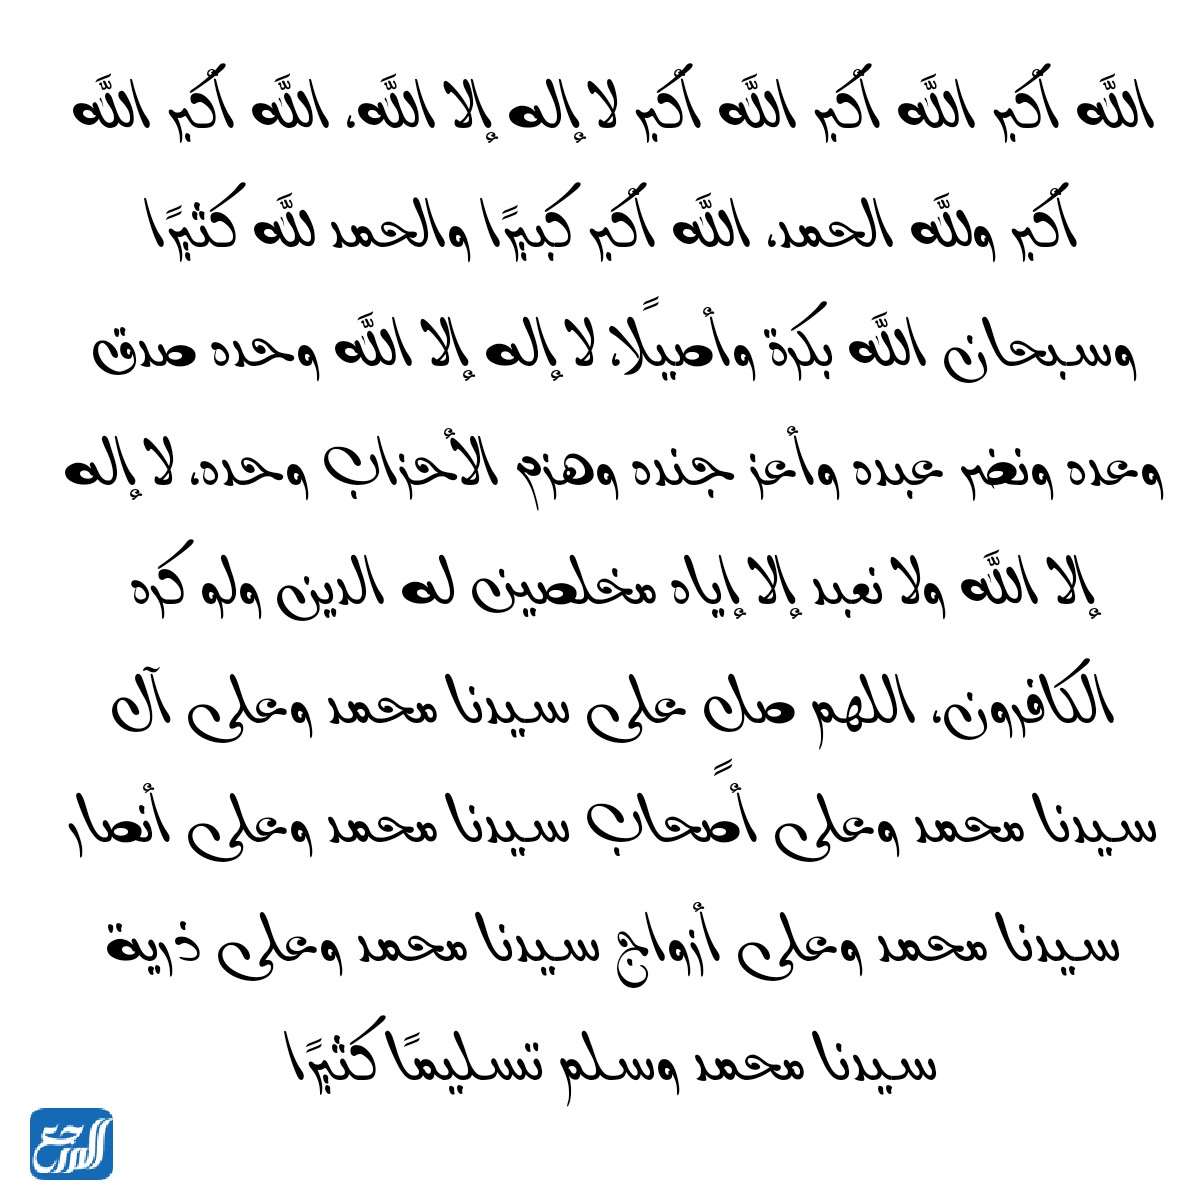 الله أكبر الله أكبر الله أكبر لا إله إلا الله، الله أكبر الله
أكبر ولله الحمد، الله أكبر كبيرًا والحمد لله كثيرًا
وسبحان الله بكرة وأصيلًا، لا إله إلا الله وحده صدق
وعده ونضر عبده وأعز جنده وهزم الأحزاب وحده، لا إله
إلا الله ولا نعبد إلا إياه مخلصين له الدين ولو كره
الكافرون، اللهم صل على سيدنا محمد وعلى آل
سيدنا محمد وعلى أًصحاب سيدنا محمد وعلى أنصار
سيدنا محمد وعلى أزواج سيدنا محمد وعلى ذرية
سيدنا محمد وسلم تسليمًا كثيرًا
المرجع